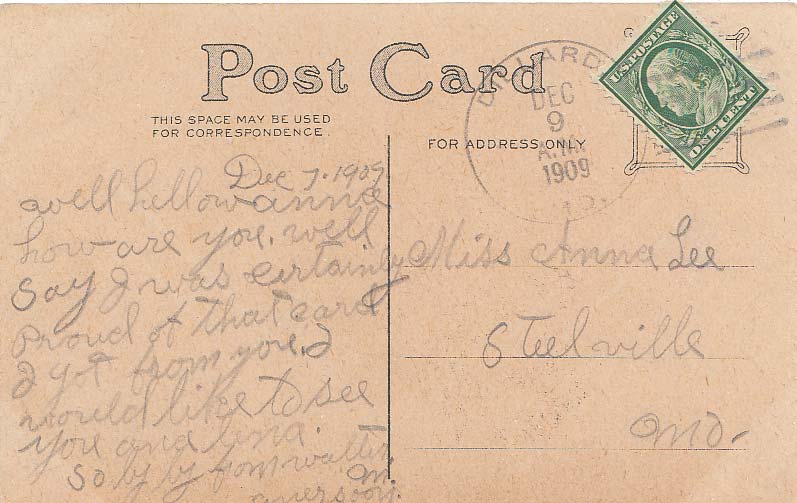 Post Card
THIS SPACE MAY BE USED
FOR CORRESPONDENCE.
Dec 7. 1909
well hellow anna
how are you. well
Say I was certainly
Proud of that card
I got from you. I
would like to see
you and lina.
So by by from walter
M.
FOR ADDRESS ONLY
DEC
9
A.M.
1909
U.S. POSTAGE
ONE CENT
Miss Anna Lee
Steelville
Mo.